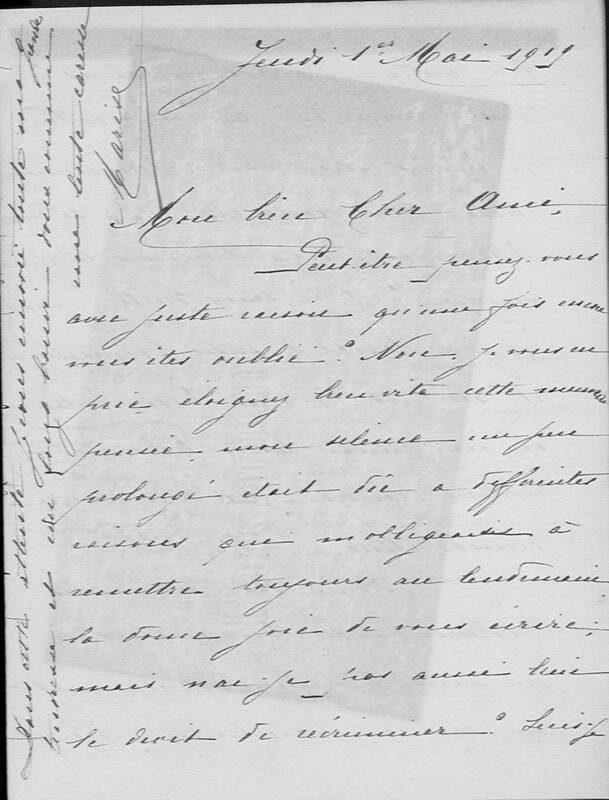 Jeudi 1er Mai 1919
Mon bien Cher Ami,
Peut-être pensez-vous
avec juste raison qu'une fois encore
vous êtes oublié ? Non, je vous en
prie éloignez bien vite cette mauvaise
pensée, mon silence un peu
prolongé était dû a différentes
raisons qui m'obligeaient à
remettre toujours au lendemain
la douce joie de vous écrire;
mais n'ai-je pas aussi bien
le droit de récriminer ? Suis-je
Dans cette attente je vous envoie toute ma grande
tendresse et un long baiser doux comme
une lente caresse
Marise